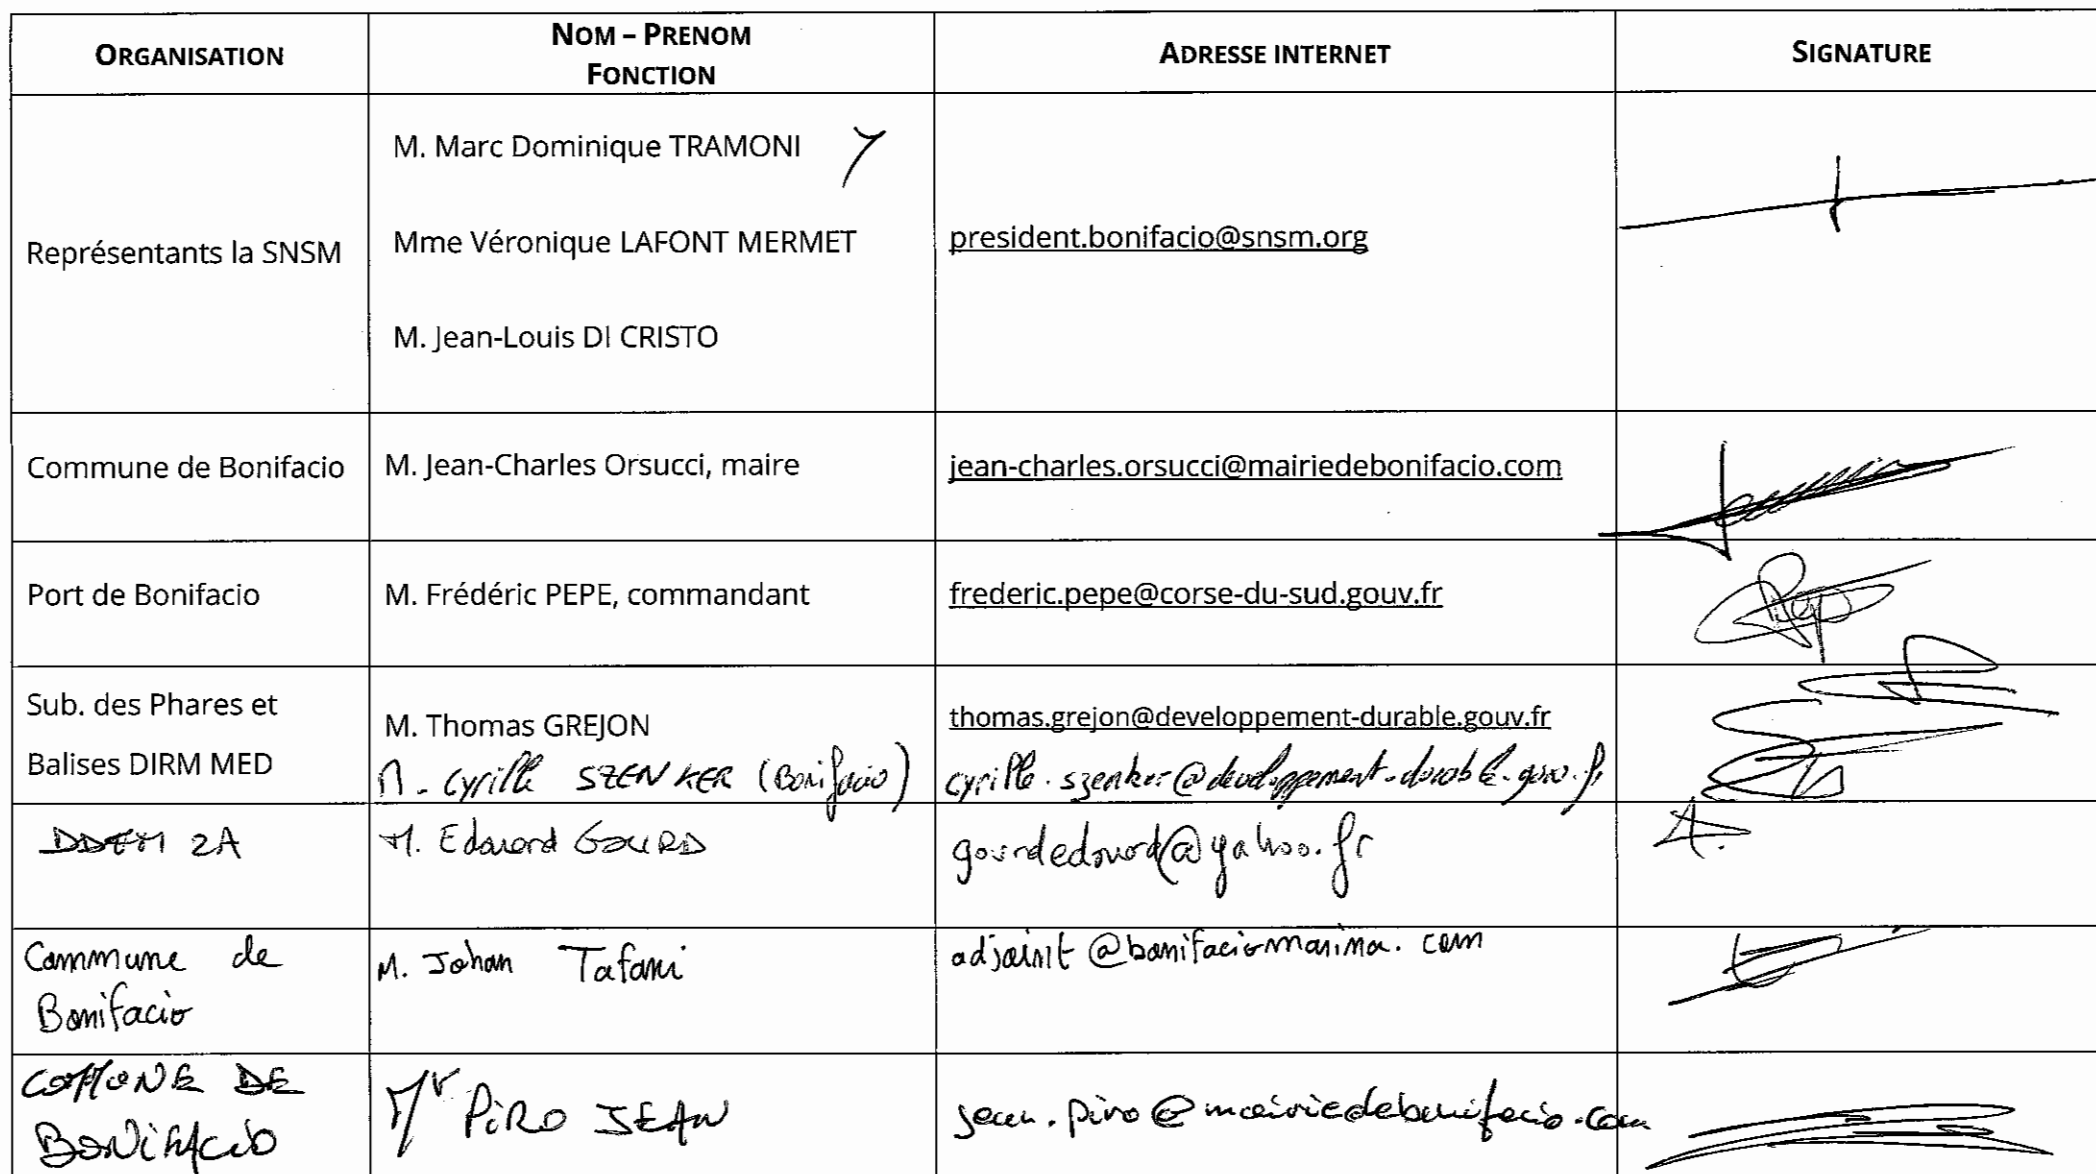 ORGANISATION
NOM – PRENOM
FONCTION
ADRESSE INTERNET
SIGNATURE
Représentants la SNSM
M. Marc Dominique TRAMONI
Mme Véronique LAFONT MERMET
M. Jean-Louis DI CRISTO
president.bonifacio@snsm.org
Commune de Bonifacio
M. Jean-Charles Orsucci, maire
jean-charles.orsucci@mairiedebonifacio.com
Port de Bonifacio
M. Frédéric PEPE, commandant
frederic.pepe@corse-du-sud.gouv.fr
Sub. des Phares et
Balises DIRM MED
M. Thomas GREJON
M. Cyrille SZENKER (Bonifacio)
thomas.grejon@developpement-durable.gouv.fr
cyrille.szenker@developpement-durable.gouv.fr
2A
M. Edouard GOURD
gourdedouard@yahoo.fr
Commune de
Bonifacio
M. Johan Tafani
adjoint@bonifaciomarina.com
COMMUNE DE
BONIFACIO
Mr PIRO JEAN
jean.piro@mairiedebonifacio.com